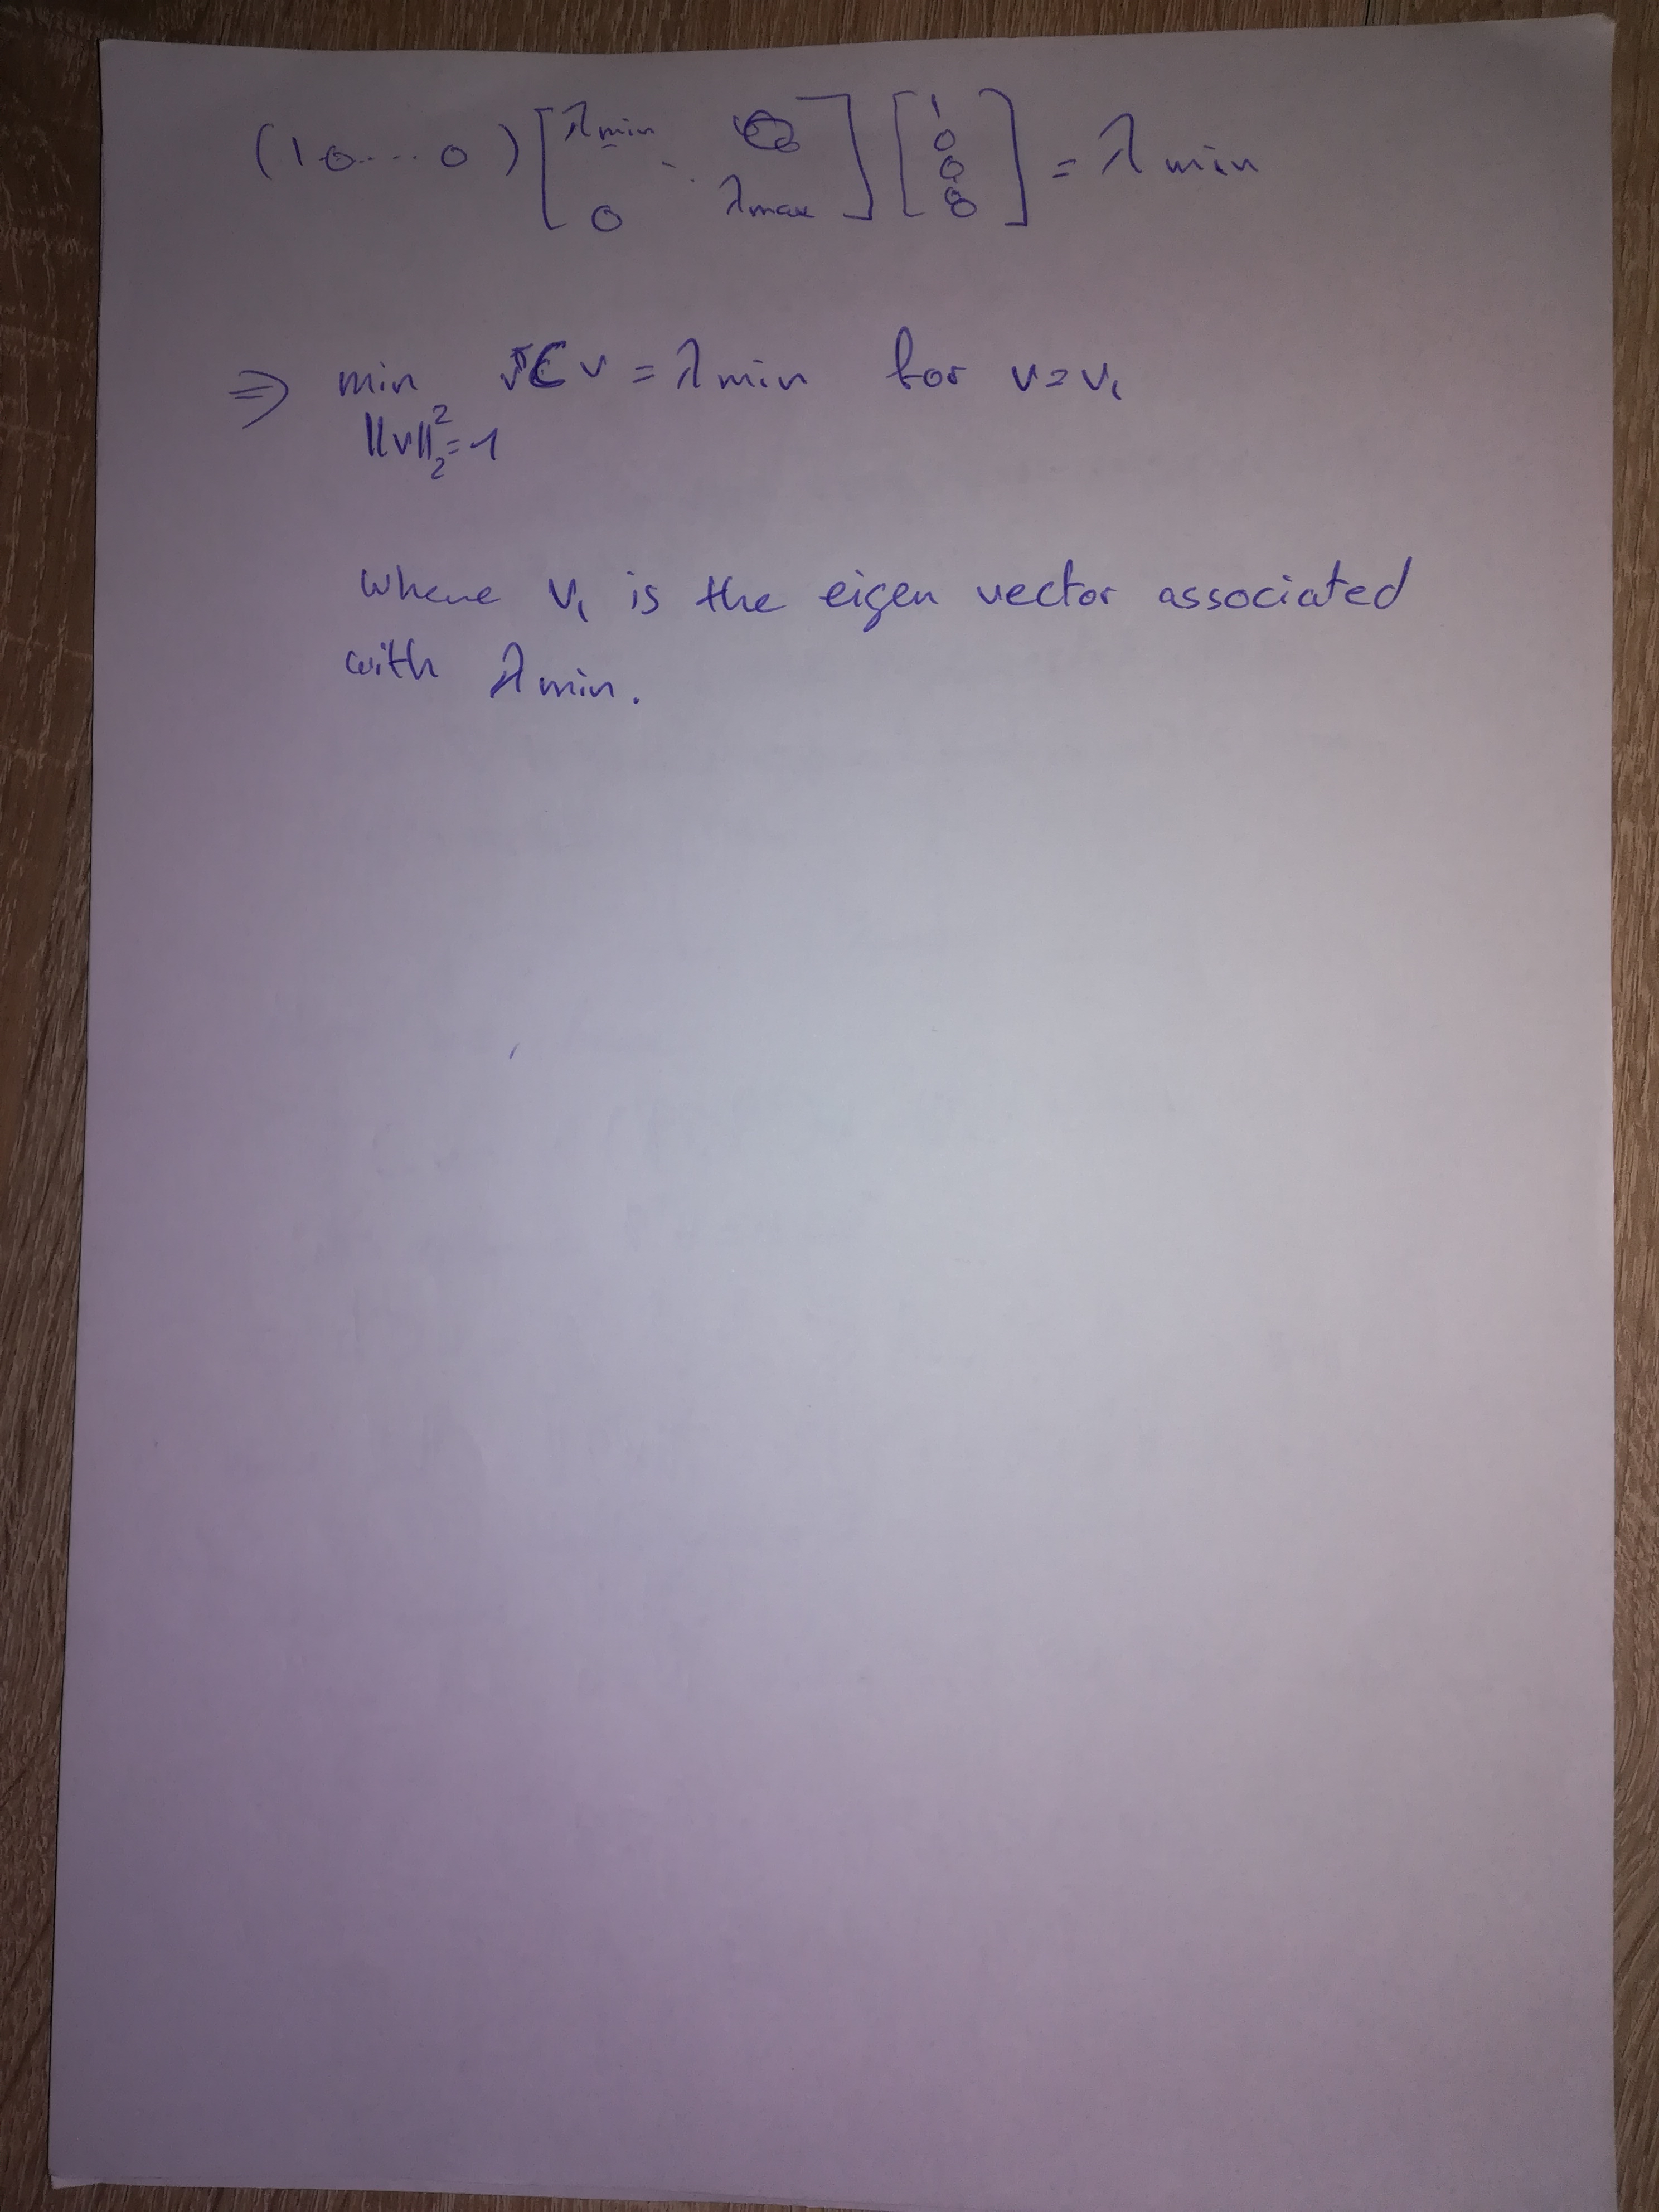 (1 0 .... 0) [λmin 0 ⋱ 0 λmax] [1 0 0 0] = λ min
⇒ min vᵀC v = λ min for v = v₁
||v||₂² = 1
where v₁ is the eigen vector associated
with λ min.